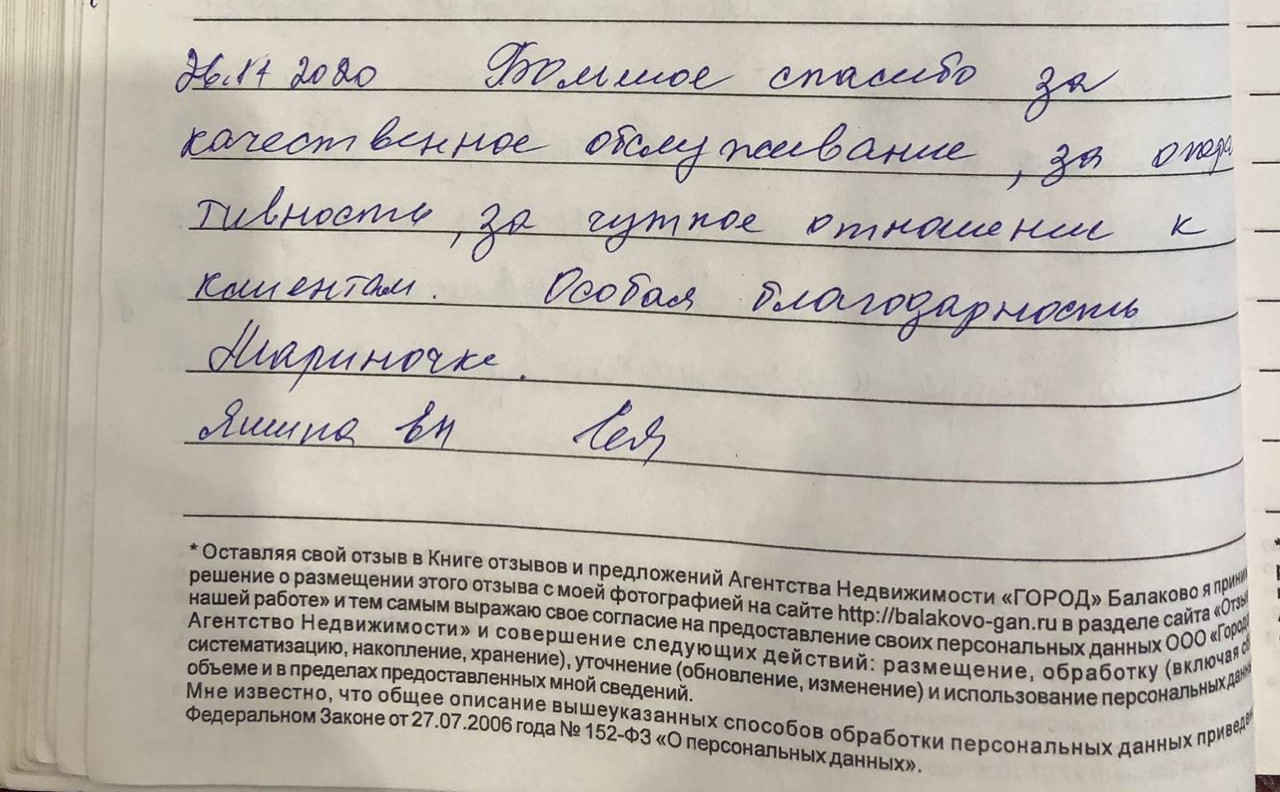 26.11 2020 Большое спасибо за
качественное обслуживание, за опера
тивность, за чуткое отношении к
клиентам. Особая благодарность
Мариночке.
Яшина ВН
* Оставляя свой отзыв в Книге отзывов и предложений Агентства Недвижимости «ГОРОД» Балаково я приним
решение о размещении этого отзыва с моей фотографией на сайте http://balakovo-gan.ru в разделе сайта «Отзы
нашей работе» и тем самым выражаю свое согласие на предоставление своих персональных данных ООО «Город
Агентство Недвижимости» и совершение следующих действий: размещение, обработку (включая сб
систематизацию, накопление, хранение), уточнение (обновление, изменение) и использование персональных данн
объеме и в пределах предоставленных мной сведений.
Мне известно, что общее описание вышеуказанных способов обработки персональных данных приведен
Федеральном Законе от 27.07.2006 года № 152-ФЗ «О персональных данных».